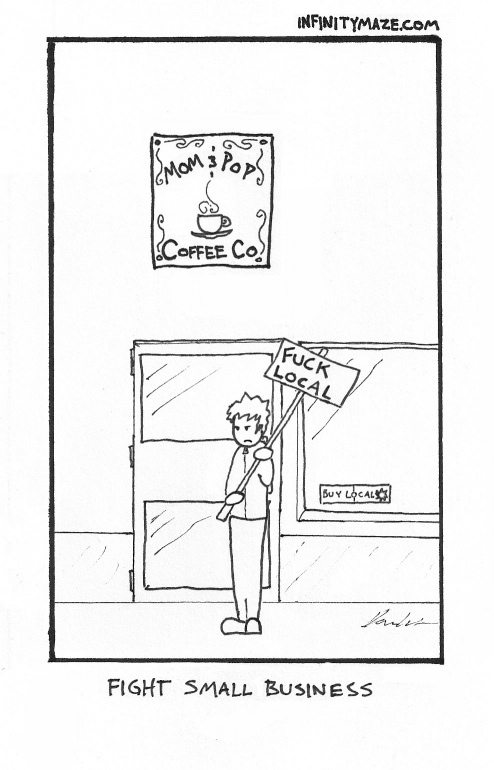 INFINITYMAZE.COM
MOM & POP
COFFEE CO.
FUCK
LOCAL
BUY LOCAL
FIGHT SMALL BUSINESS